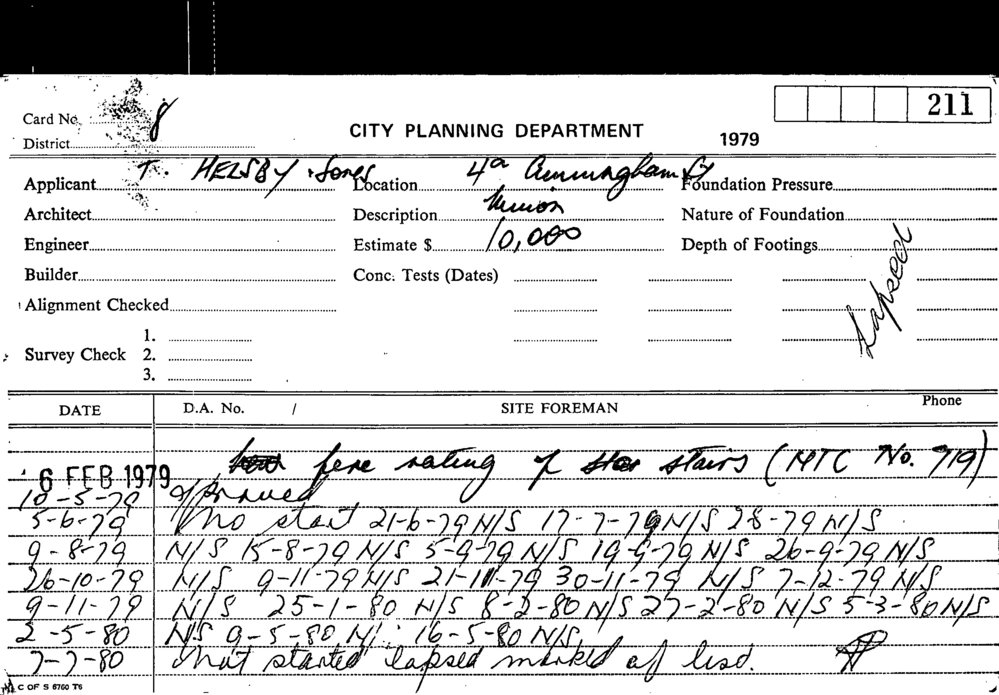 211
Card No. 8
CITY PLANNING DEPARTMENT 1979
District
Applicant T. HELSBY & Jones Location 4a Cunningham Foundation Pressure
Architect Description Nature of Foundation
Engineer Estimate $ 10,000 Depth of Footings
Builder Conc. Tests (Dates)
Lapsed
Alignment Checked
1.
Survey Check 2.
3.
DATE D.A. No. / SITE FOREMAN Phone
6 FEB 1979 fire rating of stairs (MTC No. 719)
10-5-79 approved
5-6-79 No start 21-6-79 N/S 17-7-79 N/S 2-8-79 N/S
9-8-79 N/S 15-8-79 N/S 5-9-79 N/S 19-9-79 N/S 26-9-79 N/S
26-10-79 N/S 9-11-79 N/S 21-11-79 30-11-79 N/S 7-12-79 N/S
9-11-79 N/S 25-1-80 N/S 8-2-80 N/S 27-2-80 N/S 5-3-80 N/S
2-5-80 N/S 9-5-80 N/ 16-5-80 N/S
7-7-80 not started lapsed marked of list.
C OF S 6760 T6